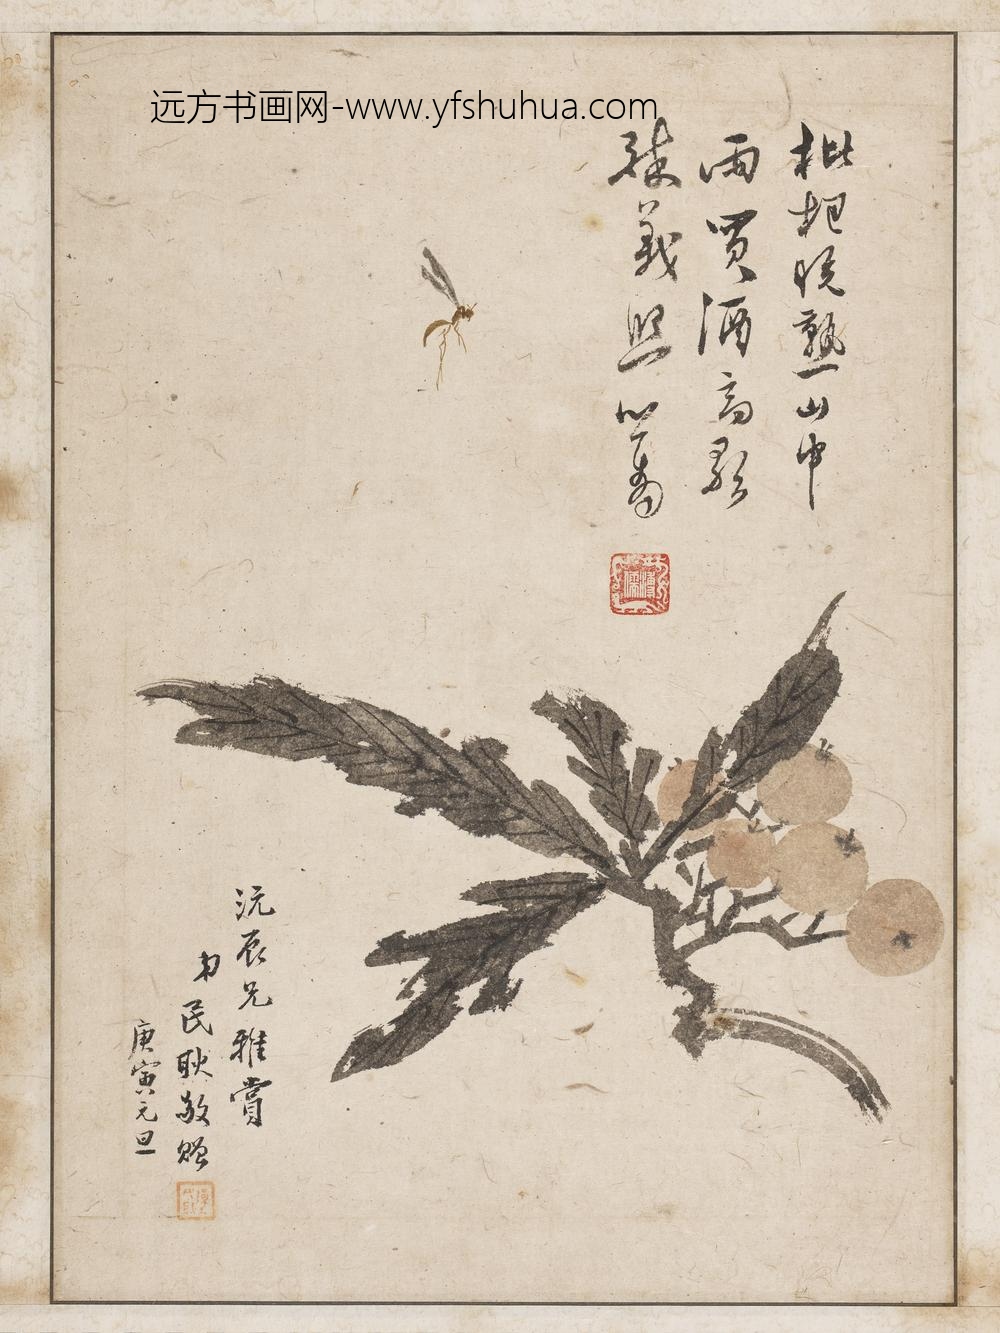 远方书画网-www.yfshuhua.com
枇杷晚熟山中
雨買酒高歌
殘義熙 心畬
沅辰兄雅賞
弟民耿敬贈
庚寅元旦